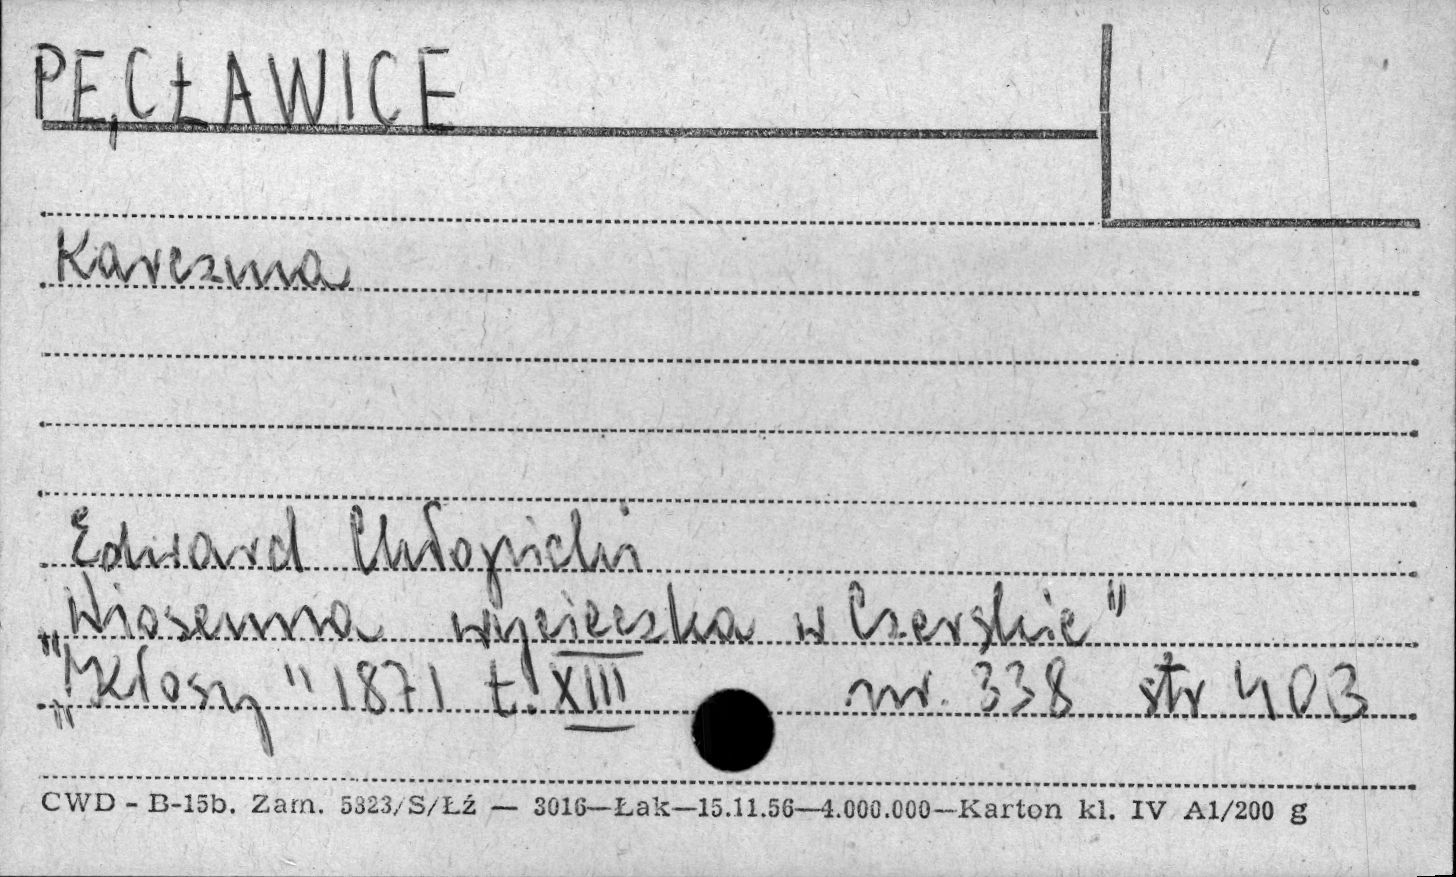 PĘCŁAWICE
Karczma
Edward Chłopicki
„Wiosenna wycieczka w Czerskie"
„Kłosy" 1871 t. XIII nr. 338 str 403
CWD - B-15b. Zam. 5323/S/Łź — 3016—Łak—15.11.56—4.000.000—Karton kl. IV A1/200 g